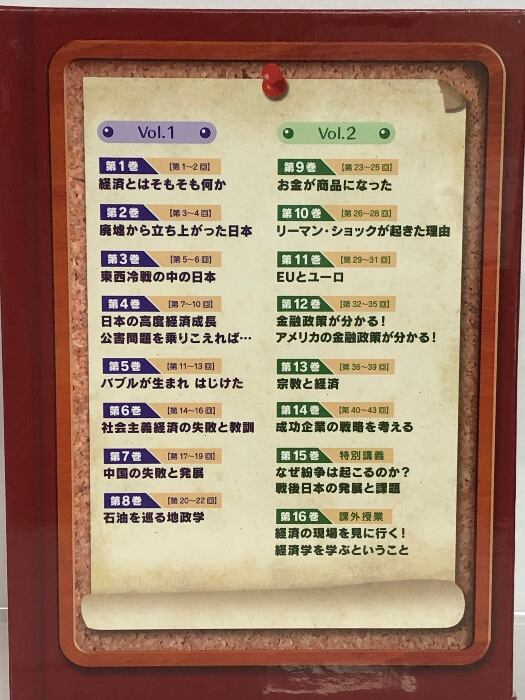 Vol.1
第1巻 【第1~2回】
経済とはそもそも何か
第2巻 【第3~4回】
廃墟から立ち上がった日本
第3巻 【第5~6回】
東西冷戦の中の日本
第4巻 【第7~10回】
日本の高度経済成長
公害問題を乗りこえれば…
第5巻 【第11~13回】
バブルが生まれ はじけた
第6巻 【第14~16回】
社会主義経済の失敗と教訓
第7巻 【第17~19回】
中国の失敗と発展
第8巻 【第20~22回】
石油を巡る地政学
Vol.2
第9巻 【第23~25回】
お金が商品になった
第10巻 【第26~28回】
リーマン・ショックが起きた理由
第11巻 【第29~31回】
EUとユーロ
第12巻 【第32~35回】
金融政策が分かる!
アメリカの金融政策が分かる!
第13巻 【第36~39回】
宗教と経済
第14巻 【第40~43回】
成功企業の戦略を考える
第15巻 特別講義
なぜ紛争は起こるのか?
戦後日本の発展と課題
第16巻 課外授業
経済の現場を見に行く!
経済学を学ぶということ